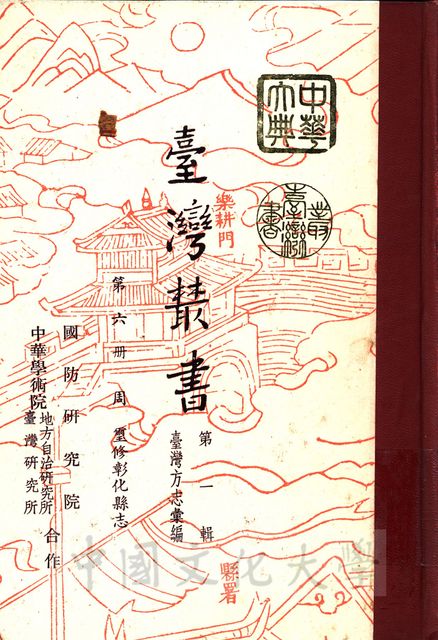 中華大典
臺灣叢書
臺灣叢書
第一輯
臺灣方志彙編
第六册
周璽修彰化縣志
國防研究院
中華學術院
地方自治研究所
臺灣研究所
合作
樂耕門
縣署
中國文化大學